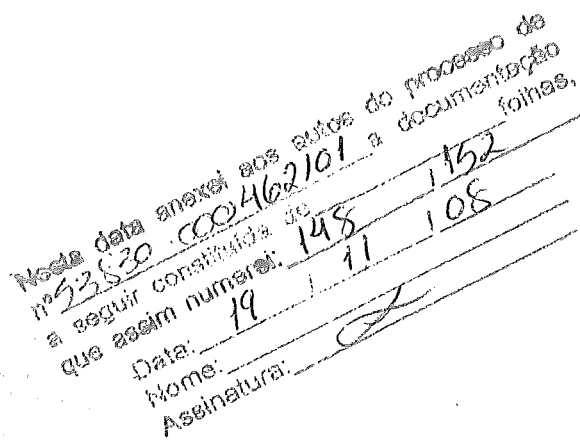 Nesta data anexei aos autos do processo de
nº 53830.000462/01 a documentação
a seguir constituída de folhas,
que assim numerei: 148 / 152
Data: 19 / 11 / 08
Nome:
Assinatura: